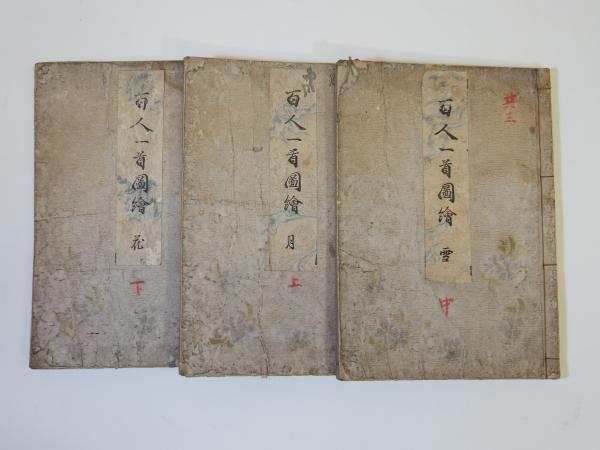 百人一首圖繪 雪
共三
中
百人一首圖繪 月
上
百人一首圖繪 花
下